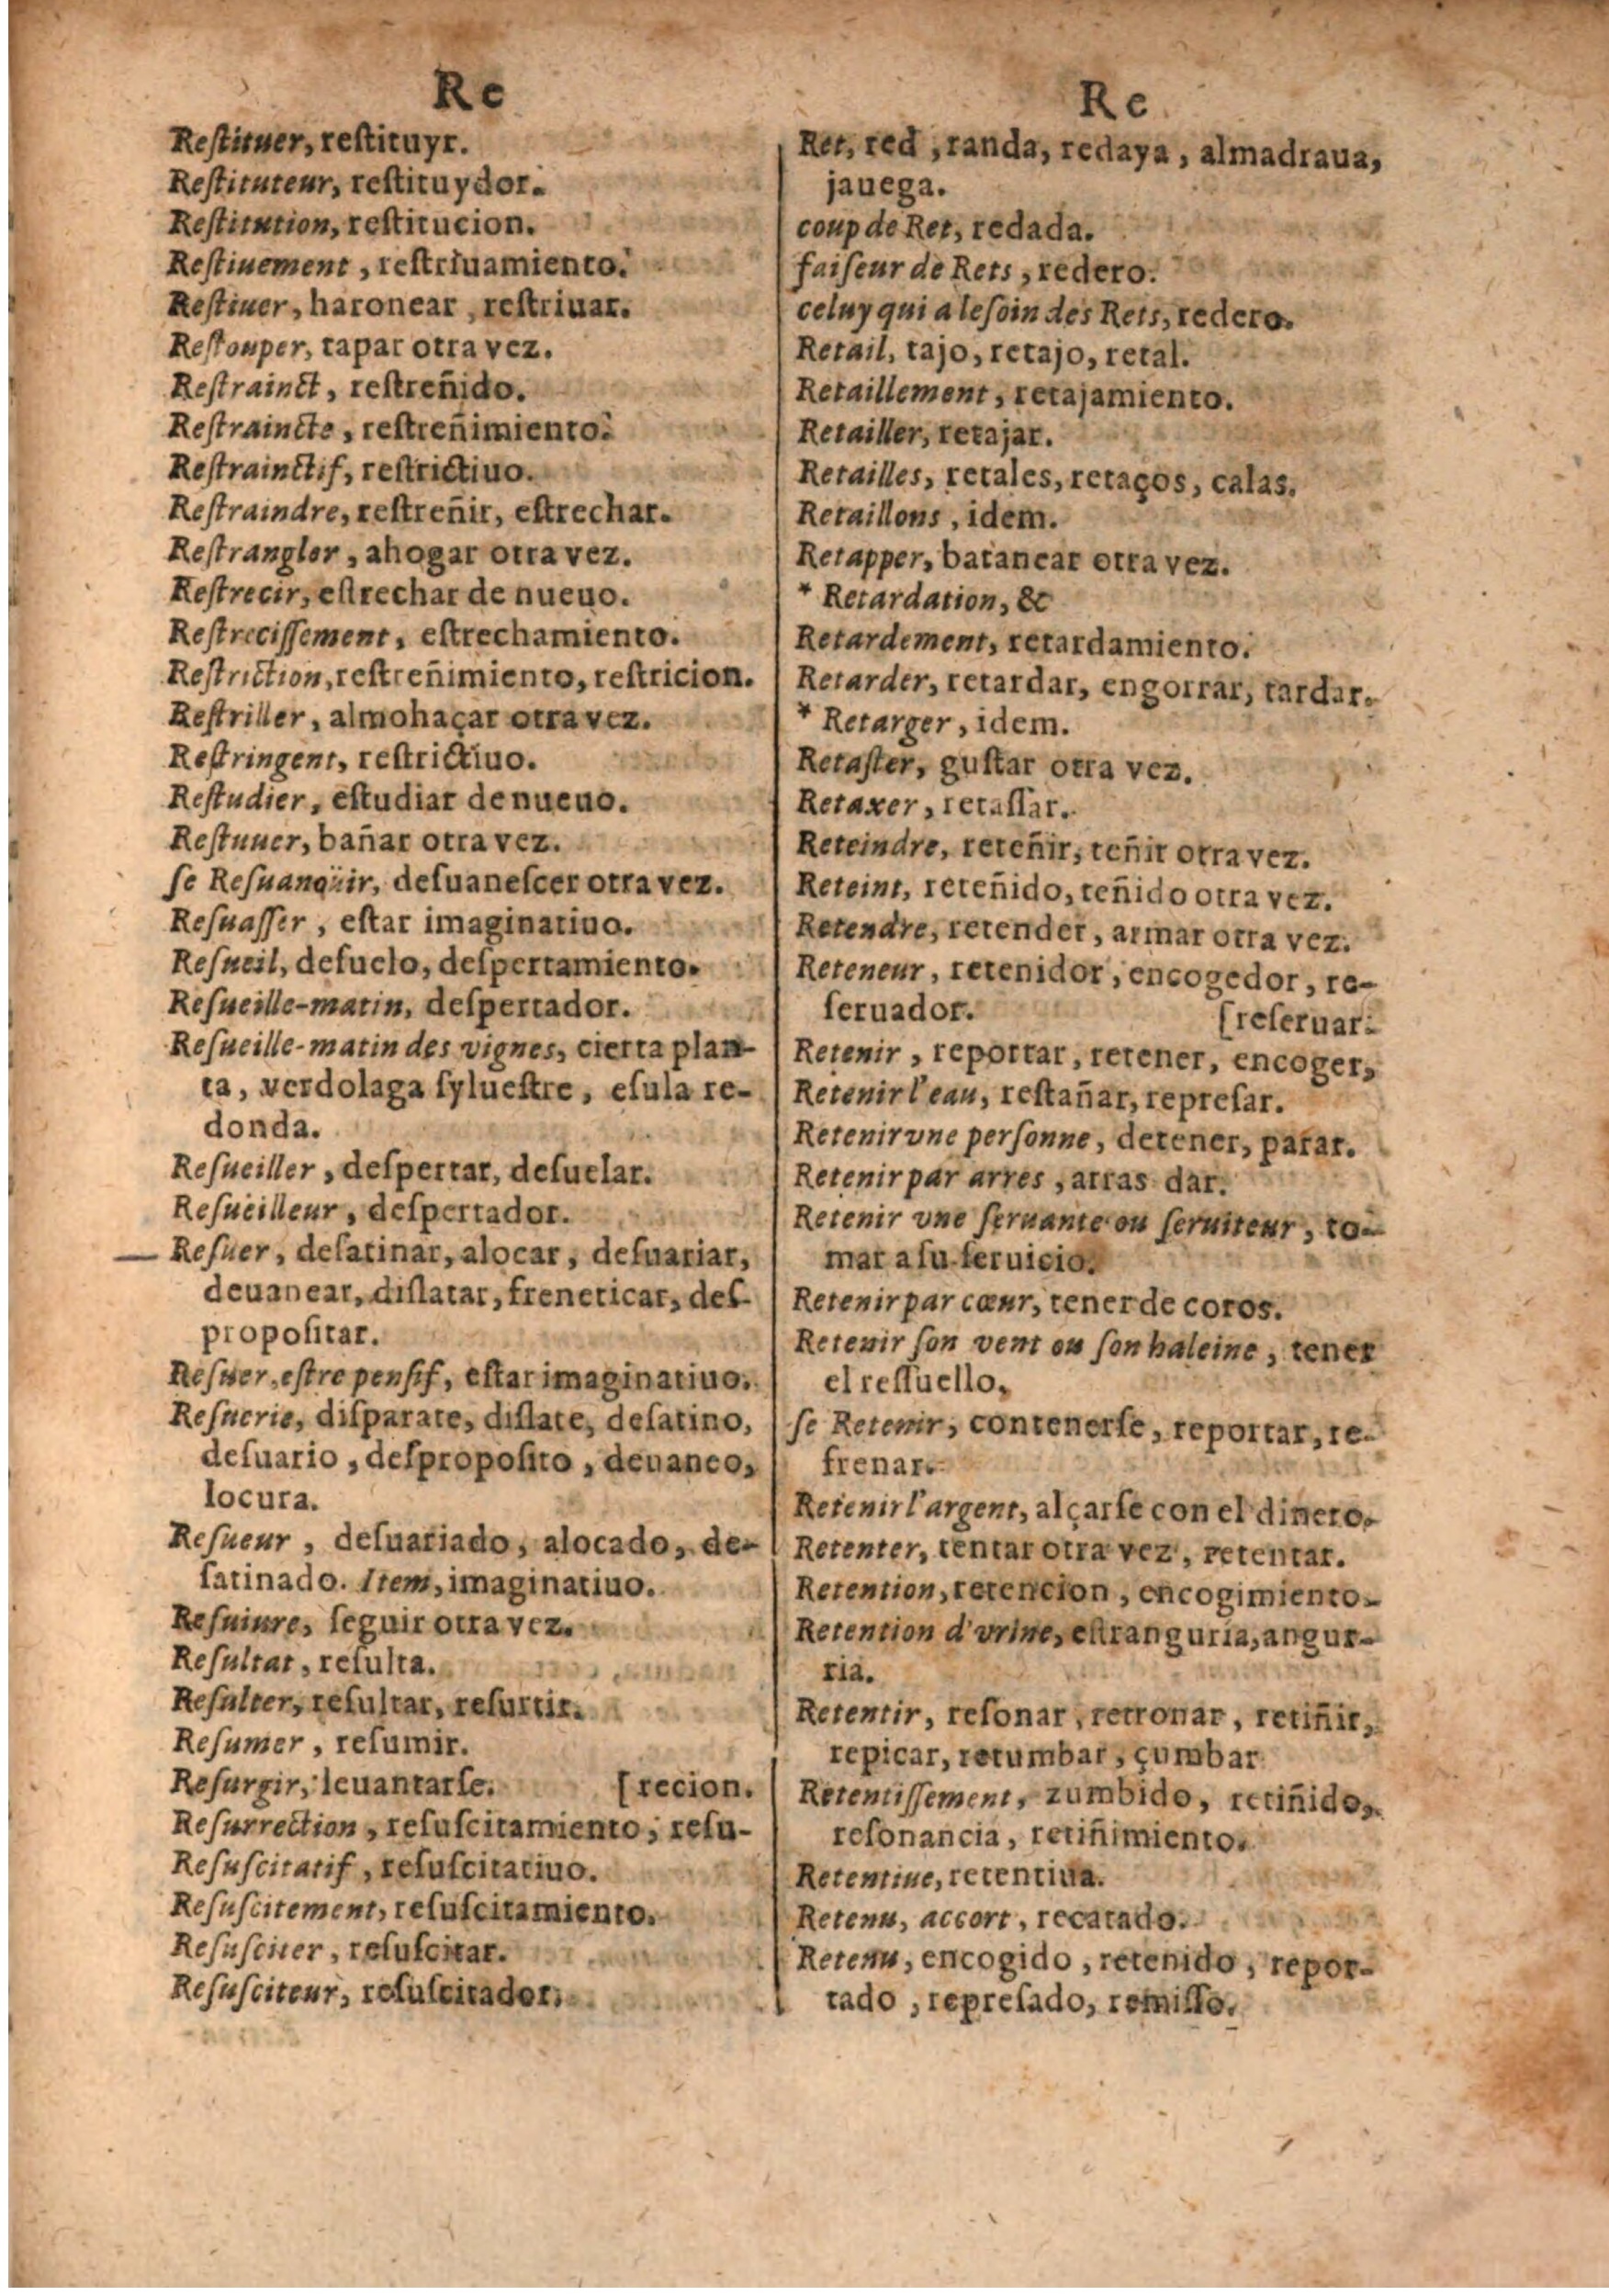 Re
Reſtituer, reſtituyr.
Reſtituteur, reſtituydor.
Reſtitution, reſtitucion.
Reſtiuement, reſtriuamiento.
Reſtiuer, haronear, reſtriuar.
Reſtouper, tapar otra vez.
Reſtrainct, reſtreñido.
Reſtraincte, reſtreñimiento.
Reſtrainctif, reſtrictiuo.
Reſtraindre, reſtreñir, eſtrechar.
Reſtrangler, ahogar otra vez.
Reſtrecir, eſtrechar de nueuo.
Reſtreciſſement, eſtrechamiento.
Reſtriction, reſtreñimiento, reſtricion.
Reſtriller, almohaçar otra vez.
Reſtringent, reſtrictiuo.
Reſtudier, eſtudiar de nueuo.
Reſtuuer, bañar otra vez.
ſe Reſuanoüir, deſuaneſcer otra vez.
Reſuaſſer, eſtar imaginatiuo.
Reſueil, deſuelo, deſpertamiento.
Reſueille-matin, deſpertador.
Reſueille-matin des vignes, cierta plan-
ta, verdolaga ſylueſtre, eſula re-
donda.
Reſueiller, deſpertar, deſuelar.
Reſueilleur, deſpertador.
Reſuer, deſatinar, alocar, deſuariar,
deuanear, diſlatar, freneticar, deſ-
propoſitar.
Reſuer, eſtre penſif, eſtar imaginatiuo.
Reſuerie, diſparate, diſlate, deſatino,
deſuario, deſpropoſito, deuaneo,
locura.
Reſueur, deſuariado, alocado, de-
ſatinado. Item, imaginatiuo.
Reſuiure, ſeguir otra vez.
Reſultat, reſulta.
Reſulter, reſultar, reſurtir.
Reſumer, reſumir.
Reſurgir, leuantarſe. [recion.
Reſurrection, reſuſcitamiento, reſu-
Reſuſcitatif, reſuſcitatiuo.
Reſuſcitement, reſuſcitamiento.
Reſuſciter, reſuſcitar.
Reſuſciteur, reſuſcitador.
Re
Ret, red, randa, redaya, almadraua,
jauega.
coup de Ret, redada.
faiſeur de Rets, redero.
celuy qui a le ſoin des Rets, redero.
Retail, tajo, retajo, retal.
Retaillement, retajamiento.
Retailler, retajar.
Retailles, retales, retaços, calas.
Retaillons, idem.
Retapper, batanear otra vez.
* Retardation, &c
Retardement, retardamiento.
Retarder, retardar, engorrar, tardar.
* Retarger, idem.
Retaſter, guſtar otra vez.
Retaxer, retaſſar.
Reteindre, reteñir, teñir otra vez.
Reteint, reteñido, teñido otra vez.
Retendre, retender, armar otra vez.
Reteneur, retenidor, encogedor, re-
ſeruador. [reſeruar.
Retenir, reportar, retener, encoger,
Retenir l'eau, reſtañar, repreſar.
Retenir vne perſonne, detener, parar.
Retenir par arres, arras dar.
Retenir vne ſeruante ou ſeruiteur, to-
mar a ſu ſeruicio.
Retenir par cœur, tener de coros.
Retenir ſon vent ou ſon haleine, tener
el reſſuello.
ſe Retenir, contenerſe, reportar, re-
frenar.
Retenir l'argent, alçarſe con el dinero.
Retenter, tentar otra vez, retentar.
Retention, retencion, encogimiento.
Retention d'vrine, eſtranguria, angur-
ria.
Retentir, reſonar, retronar, retiñir,
repicar, retumbar, çumbar
Retentiſſement, zumbido, retiñido,
reſonancia, retiñimiento.
Retentiue, retentiua.
Retenu, accort, recatado.
Retenu, encogido, retenido, repor-
tado, repreſado, remiſſo.